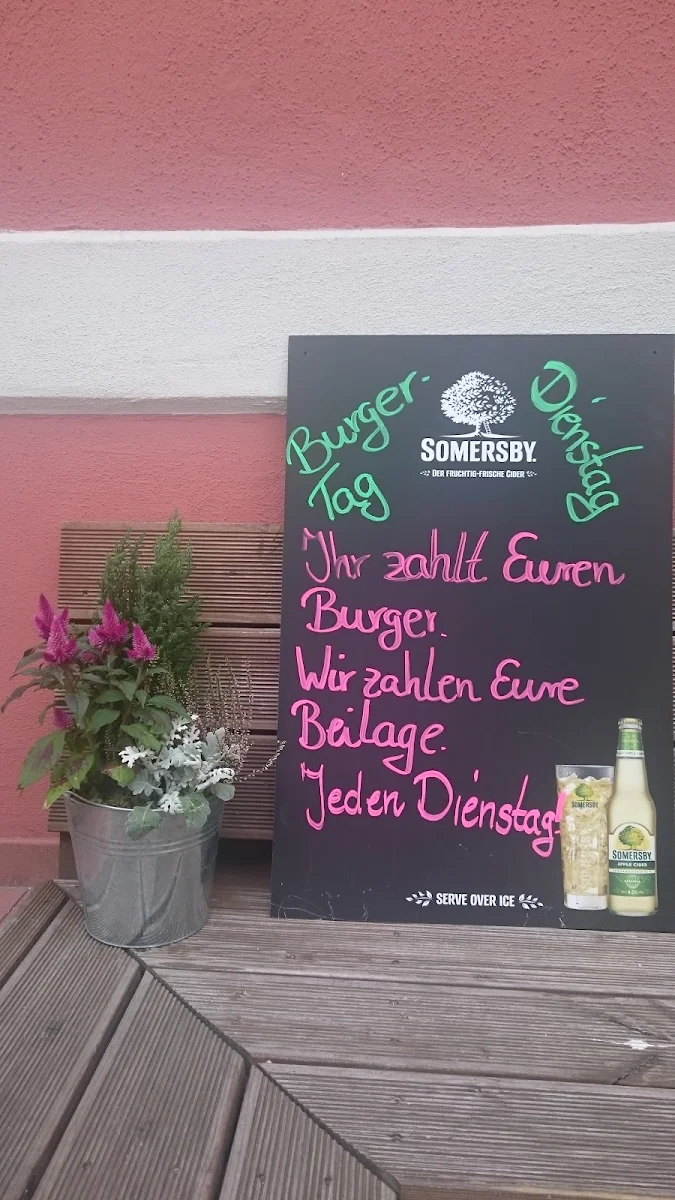 Burger-
Tag
Dienstag
SOMERSBY.
DER FRUCHTIG-FRISCHE CIDER
Ihr zahlt Euren
Burger.
Wir zahlen Eure
Beilage.
Jeden Dienstag!
SOMERSBY
SOMERSBY
APPLE CIDER
SERVE OVER ICE